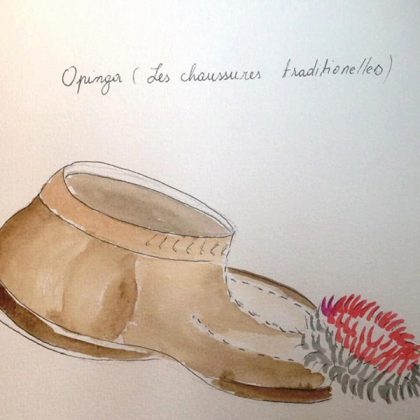 Opinga (Les chaussures traditionelles)